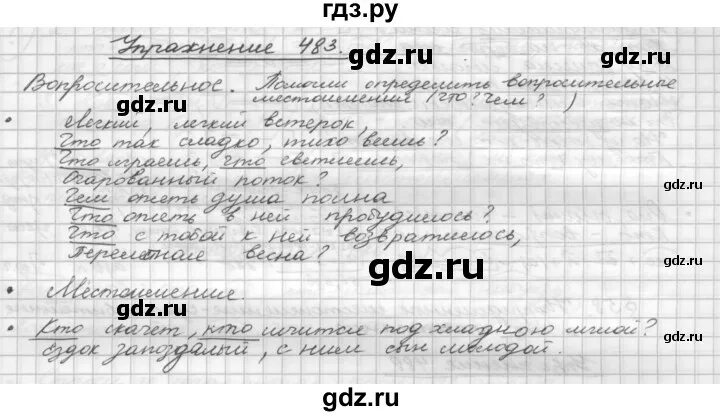 гдз.ру
Упражнение 483.
gdz.ru
Вопросительное. Помогли определить вопросительные
местоимения (что? Чем? )
gdz.ru
• Легкий, легкий ветерок,
Что так сладко, тихо веешь?
Что играешь, что светлеешь,
Очарованный поток?
gdz.ru
Чем опять душа полна
Что опять в ней пробудилось?
Что с тобой к ней возвратилось,
Перелетная весна?
gdz.ru
• Местоимение.
• Кто скачет, кто мчится под хладною мглой?
Ездок запоздалый, с ним сын молодой.
gdz.ru
gdz.ru